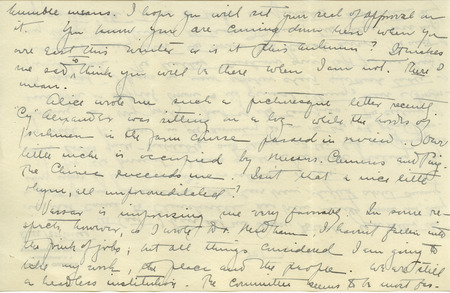 humble means. I hope you will set your seal of approval on
it. You know you are coming down here when you
are east this winter or is it this autumn? It makes
me sad to think you will be there when I am not. There I
mean.
Alice wrote me such a picturesque letter recently
"Cy" Alexander was sitting on a log while the hordes of
freshmen in the farm course passed in review. Your
little niche is occupied by Messrs. Clemens and
The succeeds me. Isn't that a nice little
rhyme, all unpremeditated?
Vassar is impressing me very favorably. In some re-
spects, however, as I wrote Dr. Needham, I haven't fallen into
the pink of jobs; but all things considered I am going to
like my work, the place and the people. We are still
a headless institution. The Committee seems to be most fas-